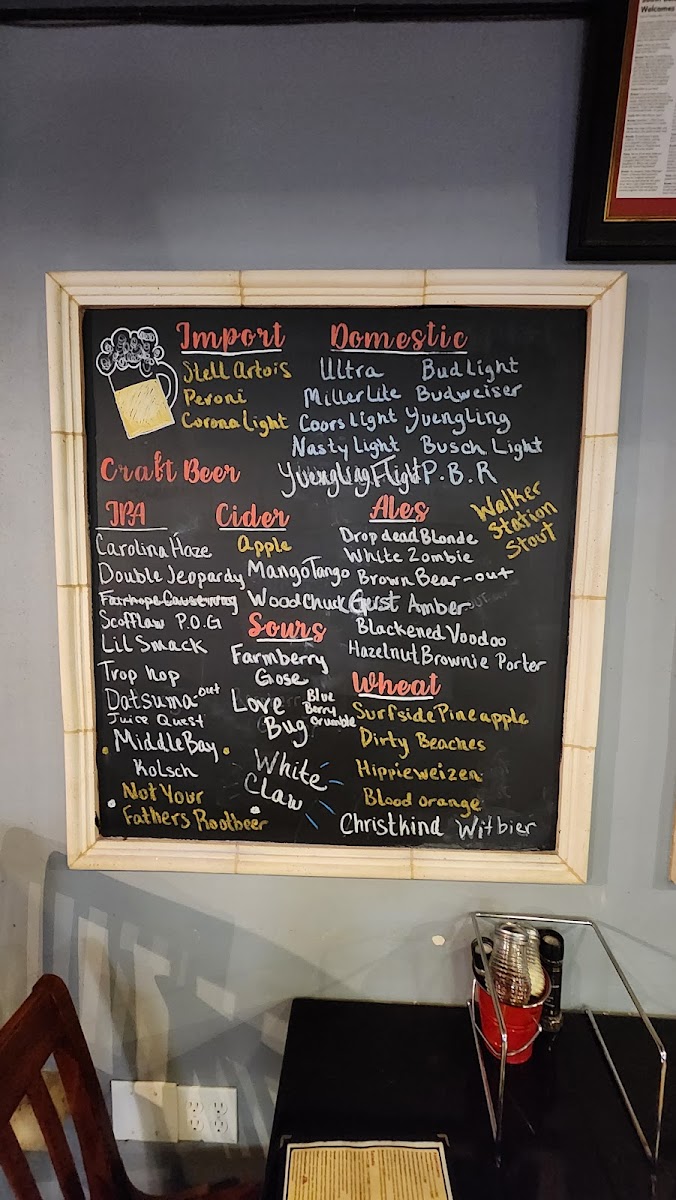 Welcomes
Import
Stell Artois
Peroni
Corona Light
Domestic
Ultra Bud Light
Miller Lite Budweiser
Coors Light Yuengling
Nasty Light Busch Light
Yuengling Flight P.B.R
Craft Beer
IPA
Carolina Haze
Double Jeopardy
Fairhope Causeway
Scofflaw P.O.G
Lil Smack
Trop hop
Datsuma-out
Juice Quest
MiddleBay
Kolsch
Not Your
Fathers Rootbeer
Cider
Apple
Mango Tango
Wood Chuck
Sours
Farmberry
Gose
Love Bug
Blue
Berry
Crumble
White
Claw
Ales
Drop dead Blonde
White Zombie
Brown Bear-out
Amber
Blackened Voodoo
Hazelnut Brownie Porter
Walker
Station
Stout
Wheat
Surfside Pineapple
Dirty Beaches
Hippieweizen
Blood orange
Christkind Witbier